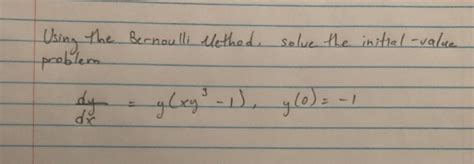 Using the Bernoulli Method, solve the initial-value
problem
dy/dx = y(xy³ - 1), y(0) = -1